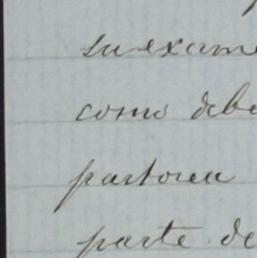 su exame
como debe
pastorea
parte de